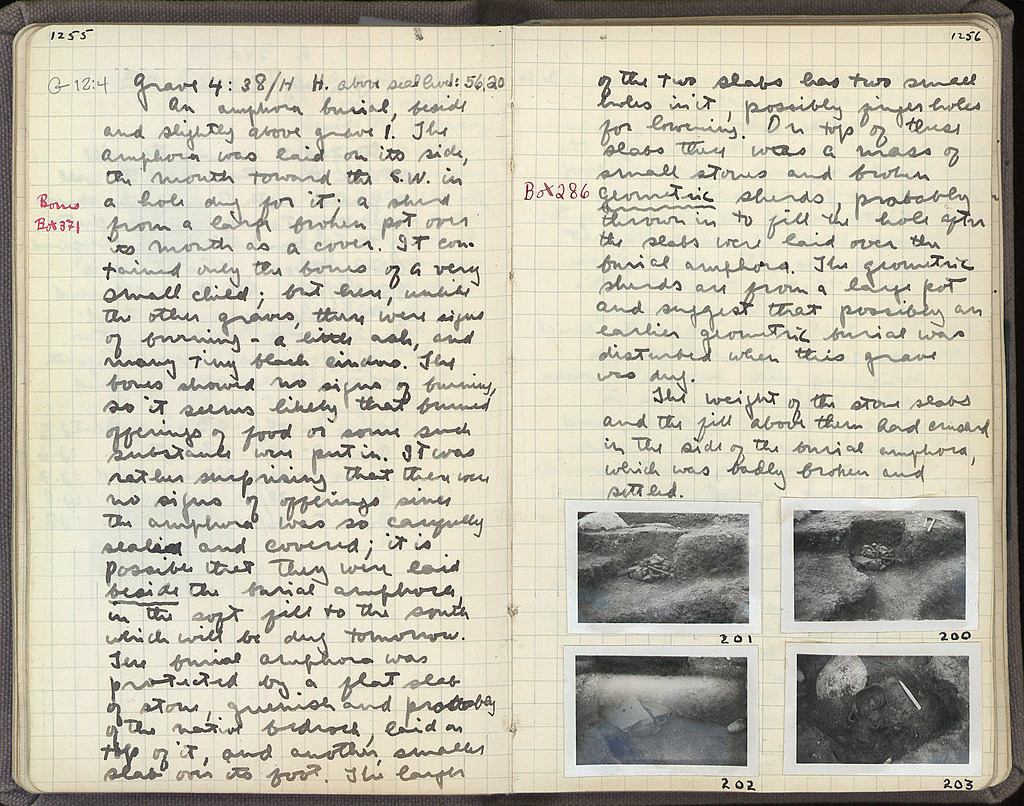 1255
G-12:4 Grave 4: 38/H H. above sea level: 56,20
An amphora burial, beside
and slightly above grave 1. The
amphora was laid on its side,
the mouth toward the S.W. in
a hole dug for it; a sherd
Bones
Box 371
from a large broken pot over
its mouth as a cover. It con-
tained only the bones of a very
small child; but here, unlike
the other graves, there were signs
of burning - a little ash, and
many tiny black cinders. The
bones showed no signs of burning,
so it seems likely that burned
offerings of food or some such
substance were put in. It was
rather surprising that there were
no signs of offerings since
the amphora was so carefully
sealed and covered; it is
possible that they were laid
beside the burial amphora,
in the soft fill to the south
which will be dug tomorrow.
The burial amphora was
protected by a flat slab
of stone, greenish and probably
of the native bedrock, laid on
top of it, and another, smaller
slab over its foot. The larger
1256
of the two slabs has two small
holes in it, possibly finger holes
for lowering. On top of these
slabs there was a mass of
small stones and broken
Box 286
geometric sherds, probably
thrown in to fill the hole after
the slabs were laid over the
burial amphora. The geometric
sherds are from a large pot
and suggest that possibly an
earlier geometric burial was
disturbed when this grave
was dug.
The weight of the stone slabs
and the fill above them had crushed
in the side of the burial amphora,
which was badly broken and
settled.
201
200
202
203